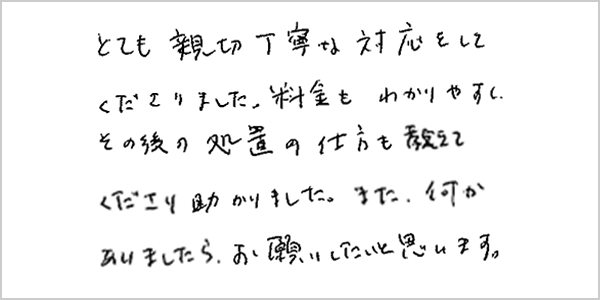 とても親切丁寧な対応をして
くださりました。料金もわかりやすく、
その後の処置の仕方も教えて
くださり助かりました。また、何か
ありましたら、お願いしたいと思います。